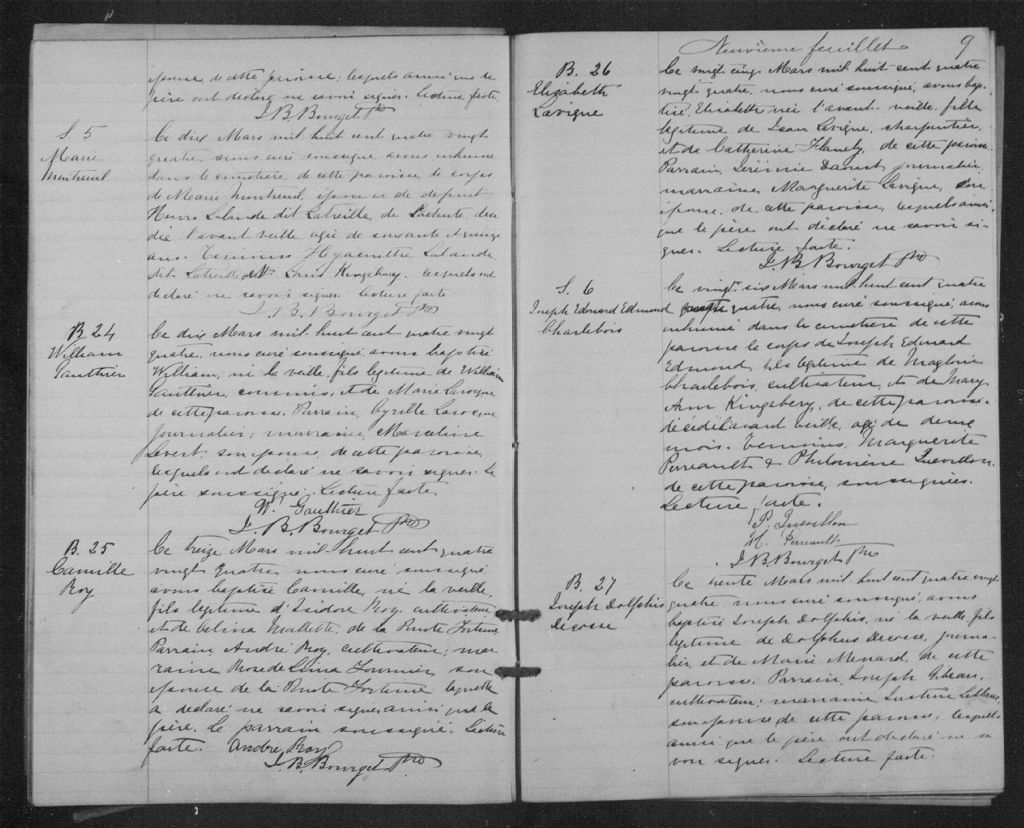 épouse de cette paroisse; lesquels ainsi que le
père ont déclaré ne savoir signer. Lecture faite.
J. B. Bourget Ptre
S. 5
Marie
Montreuil
Ce dix Mars mil huit cent quatre vingt
quatre nous curé soussigné avons inhumé
dans le cimetière de cette paroisse le corps
de Marie Montreuil, épouse de defunt
Henri Lalande dit Latreille, de Lachute, décé
dée l'avant veille, agée de soixante et quinze
ans. Témoins Hyacinthe Lalande
dit Latreille et Louis Kingsbury. lesquels ont
déclaré ne savoir signer. Lecture faite
J. B. Bourget Ptre
B 24
William
Gauthier
Ce dix Mars mil huit cent quatre vingt
quatre, nous curé soussigné, avons baptisé
William, né la veille, fils légitime de William
Gauthier, commis, et de Marie Larocque
de cette paroisse. Parrain, Cyrille Larocque
journalier; marraine, Marceline
Levert, son épouse, de cette paroisse,
lesquels ont déclaré ne savoir signer. Le
père soussigné. Lecture faite.
W. Gauthier
J. B. Bourget Ptre
B. 25
Camille
Roy
Ce treize Mars mil huit cent quatre
vingt quatre nous curé soussigné
avons baptisé Camille, né la veille,
fils légitime d'Isidore Roy, cultivateur
et de Celina Mallette, de la Pointe Fortune
Parrain André Roy, cultivateur; mar
raine Rose de Lima Fournier son
épouse de la Pointe Fortune laquelle
a déclaré ne savoir signer ainsi que le
père. Le parrain soussigné. Lecture
faite. André Roy
J. B. Bourget Ptre
Neuvième feuillet 9
B. 26
Elizabeth
Lavigne
Ce vingt cinq Mars mil huit cent quatre
vingt quatre, nous curé soussigné, avons bap-
tisé Elizabeth née l'avant veille, fille
légitime de Jean Lavigne, charpentier,
et de Catherine Hanely, de cette paroisse.
Parrain, Daoust, journalier,
marraine, Marguerite Lavigne, son
épouse, de cette paroisse, lesquels ainsi
que le père ont déclaré ne savoir si-
gner. Lecture faite.
J. B. Bourget Ptre
S. 6
Joseph Edouard Edmond
Charlebois
Ce vingt six Mars mil huit cent quatre
vingt quatre, nous curé soussigné, avons
inhumé dans le cimetière de cette
paroisse le corps de Joseph Edouard
Edmond, fils légitime de Magloire
Charlebois, cultivateur, et de Mary
Ann Kingsbery, de cette paroisse
décédé l'avant veille, agé de deux
mois. Témoins, Marguerite
Perreault & Philomène Quevillon
de cette paroisse, soussignées.
Lecture faite.
P. Quevillon
M. Perreault
J. B. Bourget Ptre
B. 27
Joseph Dolphis
Decosse
Ce trente Mars mil huit cent quatre vingt
quatre nous curé soussigné, avons
baptisé Joseph Dolphis, né la veille fils
légitime de Dolphus Decosse, journa-
lier, et de Marie Menard, de cette
paroisse. Parrain, Joseph
cultivateur; marraine Justine Leblanc,
son épouse de cette paroisse, lesquels
ainsi que le père ont déclaré ne sa
voir signer. Lecture faite.